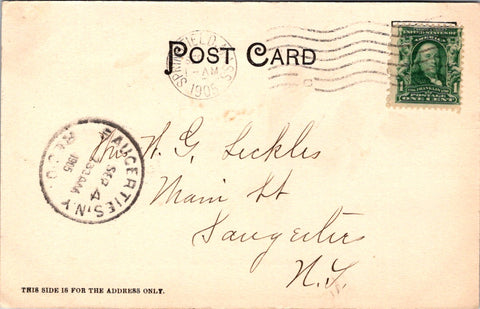 POST CARD
SPRINGFIELD, MASS.
1-AM
1905
UNITED STATES OF AMERICA
FRANKLIN
POSTAGE
1 ONE CENT 1
SAUGERTIES, N.Y.
SEP 4
1905
REC'D.
W. G. Seckles
Main St
Saugerties
N.Y.
THIS SIDE IS FOR THE ADDRESS ONLY.